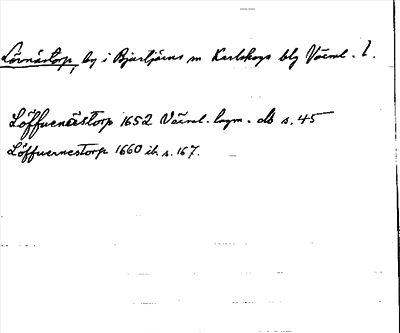 Lövnästorp, by i Bjurtjärns sn Karlskoga blg Värml. l.
Löffuenästorp 1652 Värml. lagm. db s. 45
Löffuernestorp 1660 ib. s. 167.